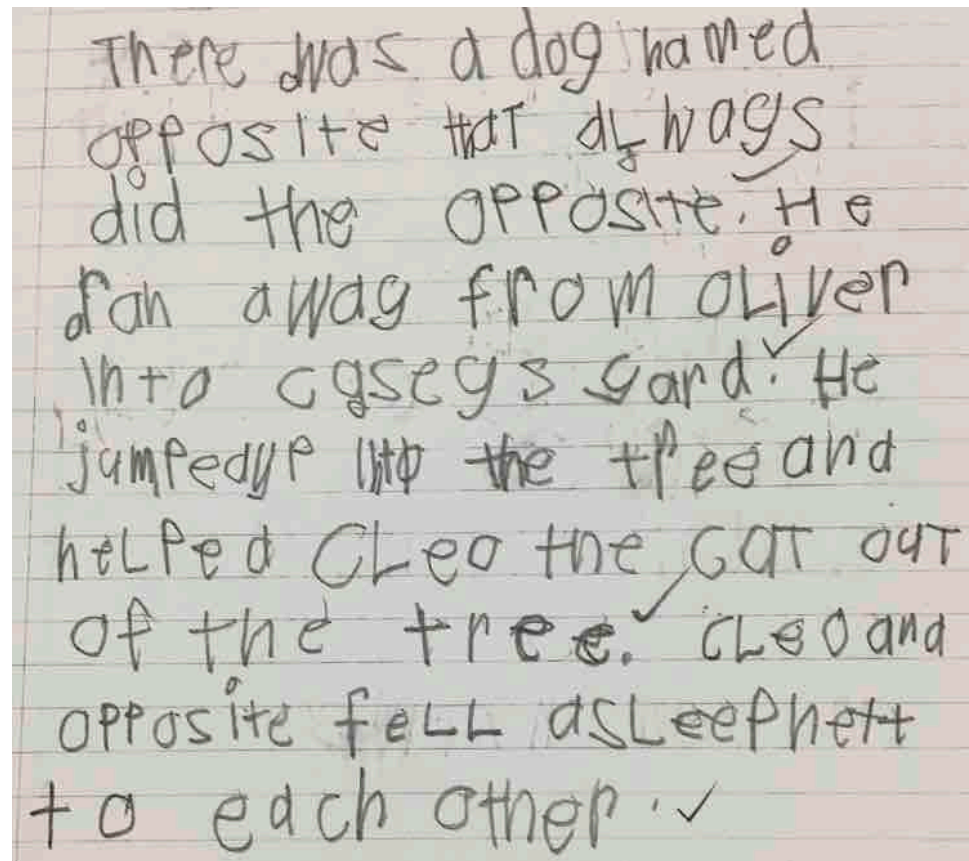 There was a dog named
opposite that always
did the opposite. He
ran away from oliver
into caseys yard. He
jumped up into the tree and
helped CLeo the cat out
of the tree. CLeo and
opposite feLL asLeep next
to each other.